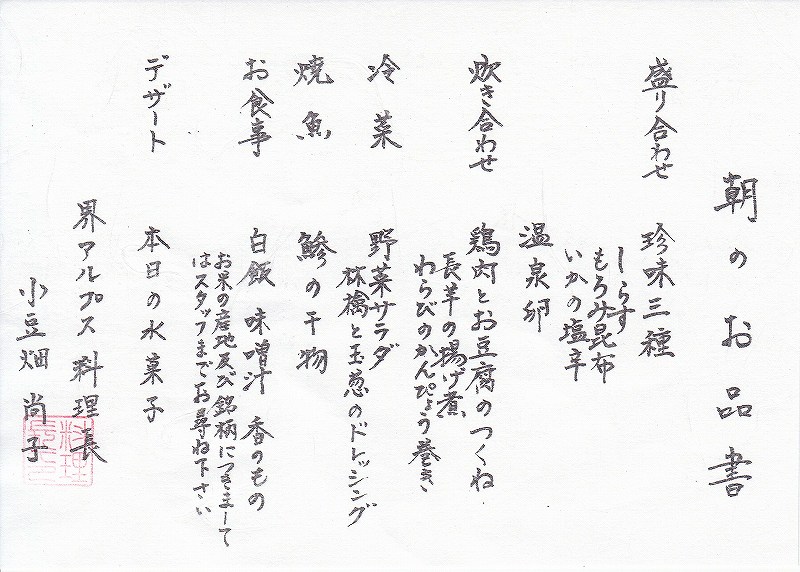 朝のお品書
盛り合わせ 珍味三種
しらす
もろみ昆布
いかの塩辛
温泉卵
炊き合わせ 鶏肉とお豆腐のつくね
長芋の揚げ煮
わらびのかんぴょう巻き
冷菜 野菜サラダ
林檎と玉葱のドレッシング
焼魚 鯵の干物
お食事 白飯 味噌汁 香のもの
お米の産地及び銘柄につきまして
はスタッフまでお尋ね下さい
デザート 本日の水菓子
界アルプス 料理長
小豆畑 尚子